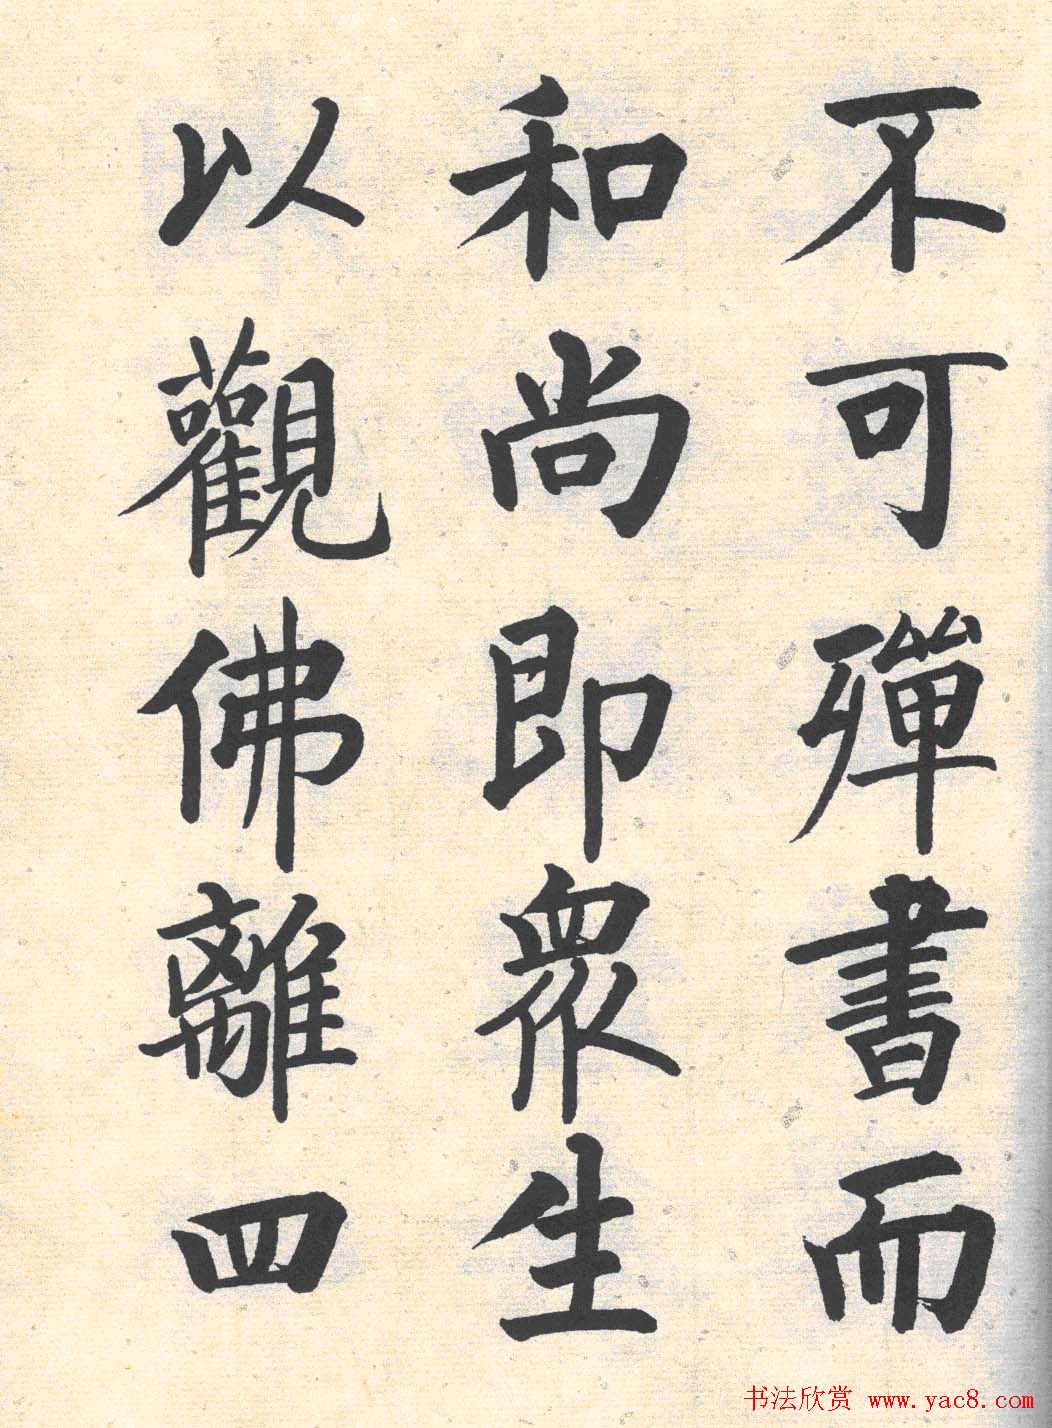 不可殫書而
和尚即眾生
以觀佛離四
书法欣赏 www.yac8.com